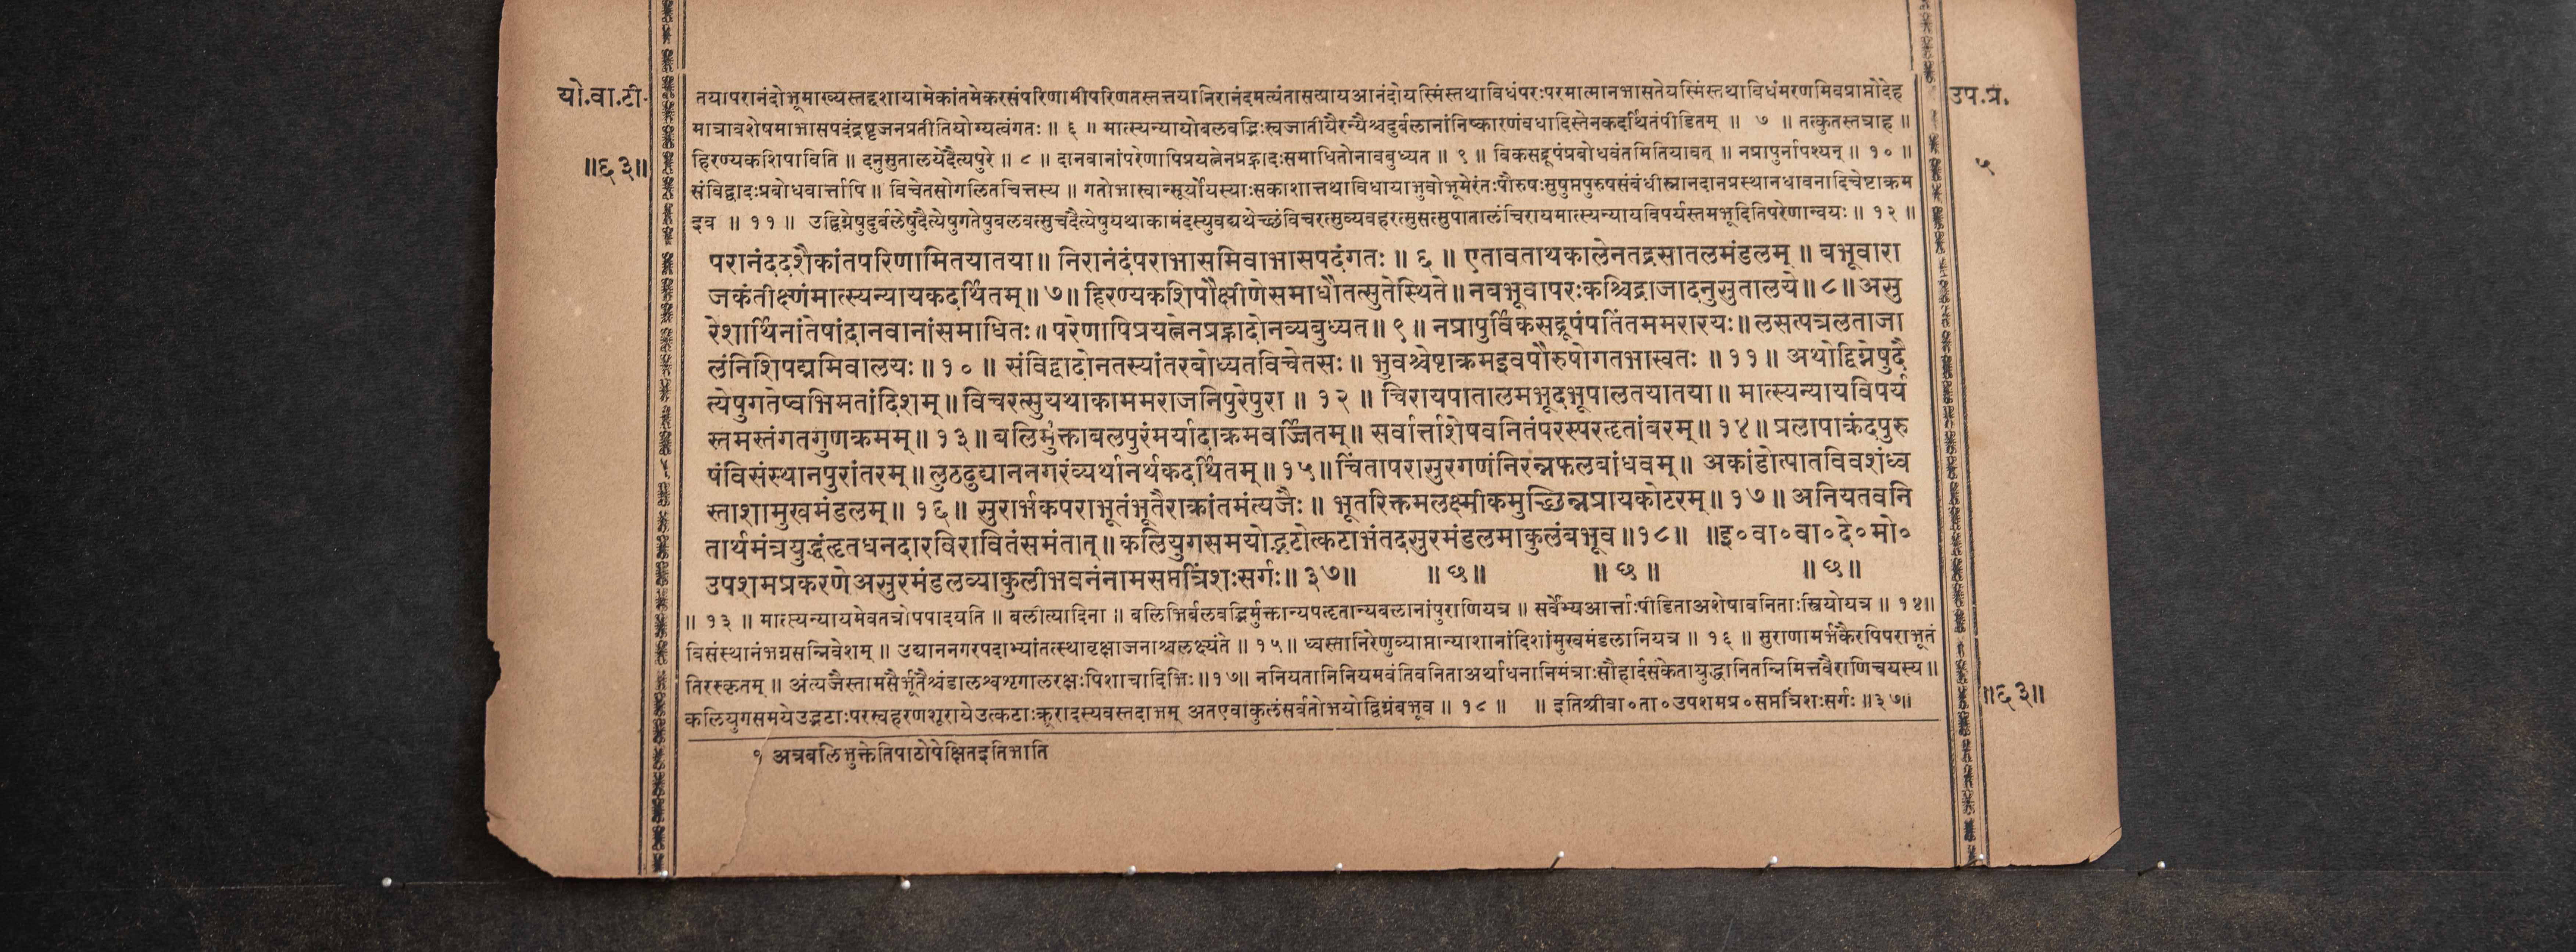 यो.वा.टी.
॥६३॥
उप.प्र.
५
तयापरानंदोभूमाख्यस्तद्दशायामेकांतमेकरसंपरिणामीपरिणतस्तत्तयानिरानंदमत्यंतासत्प्रायआनंदोयस्मिंस्तथाविधंपरःपरमात्मानभासतेयस्मिंस्तथाविधंमरणमिवप्राप्तोदेह
मात्रावशेषमाभासपदंद्रष्टृजनप्रतीतियोग्यत्वंगतः ॥ ६ ॥ मात्स्यन्यायोबलवद्भिःस्वजातीयैरन्यैश्चदुर्बलानांनिष्कारणंवधादिस्तेनकदर्थितंपीडितम् ॥ ७ ॥ तत्कुतस्तत्राह ॥
हिरण्यकशिपाविति ॥ दनुसुतालयेदैत्यपुरे ॥ ८ ॥ दानवानांपरेणापिप्रयत्नेनप्रह्लादःसमाधितोनावबुध्यत ॥ ९ ॥ विकसद्रूपंप्रबोधवंतमितियावत् ॥ नप्रापुर्नापश्यन् ॥ १० ॥
संविद्वादःप्रबोधवार्त्तापि ॥ विचेतसोगलितचित्तस्य ॥ गतोभास्वान्सूर्योयस्याःसकाशात्तथाविधायाभुवोभूमेरंतःपौरुषःसुषुप्तपुरुषसंबंधीस्नानदानप्रस्थानधावनादिचेष्टाक्रम
इव ॥ ११ ॥ उद्विग्नेषुदुर्बलेषुदैत्येषुगतेषुबलवत्सुचदैत्येषुयथाकामंदस्युवद्यथेच्छंविचरत्सुव्यवहरत्सुसत्सुपातालंचिरायमात्स्यन्यायविपर्यस्तमभूदितिपरेणान्वयः ॥ १२ ॥
परानंददशैकांतपरिणामितयातया ॥ निरानंदंपराभासमिवाभासपदंगतः ॥ ६ ॥ एतावताथकालेनतद्रसातलमंडलम् ॥ बभूवारा
जकंतीक्ष्णंमात्स्यन्यायकदर्थितम् ॥ ७ ॥ हिरण्यकशिपौक्षीणेसमाधौतत्सुतेस्थिते ॥ नबभूवापरःकश्चिद्राजादनुसुतालये ॥ ८ ॥ असु
रेशार्थिनांतेषांदानवानांसमाधितः ॥ परेणापिप्रयत्नेनप्रह्लादोनव्यबुध्यत ॥ ९ ॥ नप्रापुर्विकसद्रूपंपतिंतममरारयः ॥ लसत्पत्रलताजा
लंनिशिपद्ममिवालयः ॥ १० ॥ संविद्वादोनतस्यांतरबोध्यतविचेतसः ॥ भुवश्चेष्टाक्रमइवपौरुषोगतभास्वतः ॥ ११ ॥ अथोद्विग्नेषुदै
त्येषुगतेष्वभिमतांदिशम् ॥ विचरत्सुयथाकाममराजनिपुरेपुरा ॥ १२ ॥ चिरायपातालमभूदभूपालतयातया ॥ मात्स्यन्यायविपर्य
स्तमस्तंगतगुणक्रमम् ॥ १३ ॥ बलिमुंक्ताबलपुरंमर्यादाक्रमवर्ज्जितम् ॥ सर्वार्त्ताशेषवनितंपरस्परहृतांबरम् ॥ १४ ॥ प्रलापाक्रंदपुरु
षंविसंस्थानपुरांतरम् ॥ लुठदुद्याननगरंव्यर्थानर्थकदर्थितम् ॥ १५ ॥ चिंतापरासुरगणंनिरन्नफलबांधवम् ॥ अकांडोत्पातविवशंध्व
स्ताशामुखमंडलम् ॥ १६ ॥ सुरार्भकपराभूतंभूतैराक्रांतमंत्यजैः ॥ भूतरिक्तमलक्ष्मीकमुच्छिन्नप्रायकोटरम् ॥ १७ ॥ अनियतवनि
तार्थमंत्रयुद्धंहृतधनदारविरावितंसमंतात् ॥ कलियुगसमयोद्भटोत्कटाभंतदसुरमंडलमाकुलंबभूव ॥ १८ ॥ ॥ इ०वा०वा०दे०मो०
उपशमप्रकरणेअसुरमंडलव्याकुलीभवनंनामसप्तत्रिंशःसर्गः ॥ ३७ ॥ ॥ छ ॥ ॥ छ ॥ ॥ छ ॥
॥ १३ ॥ मात्स्यन्यायमेवतत्रोपपादयति ॥ बलीत्यादिना ॥ बलिभिर्बलवद्भिर्मुक्तान्यपहृतान्यबलानांपुराणियत्र ॥ सर्वेभ्यआर्त्ताःपीडिताअशेषावनिताःस्त्रियोयत्र ॥ १४ ॥
विसंस्थानंभग्नसन्निवेशम् ॥ उद्याननगरपदाभ्यांतत्स्थावृक्षाजनाश्चलक्ष्यंते ॥ १५ ॥ ध्वस्तानिरेणुव्याप्तान्याशानांदिशांमुखमंडलानियत्र ॥ १६ ॥ सुराणामर्भकैरपिपराभूतं
तिरस्कृतम् ॥ अंत्यजैस्तामसैर्भूतैश्चंडालश्वशृगालरक्षःपिशाचादिभिः ॥ १७ ॥ ननियतानिनियमवंतिवनिताअर्थाधनानिमंत्राःसौहार्दसंकेतायुद्धानितन्निमित्तवैराणिचयस्य ॥
कलियुगसमयेउद्भटाःपरस्वहरणशूरायेउत्कटाःक्रूरादस्यवस्तदाभम् अतएवाकुलंसर्वतोभयोद्विग्नंबभूव ॥ १८ ॥ ॥ इतिश्रीवा०ता०उपशमप्र०सप्तत्रिंशःसर्गः ॥ ३७ ॥
॥६३॥
१ अत्रबलिभुक्तेतिपाठोपेक्षितइतिभाति